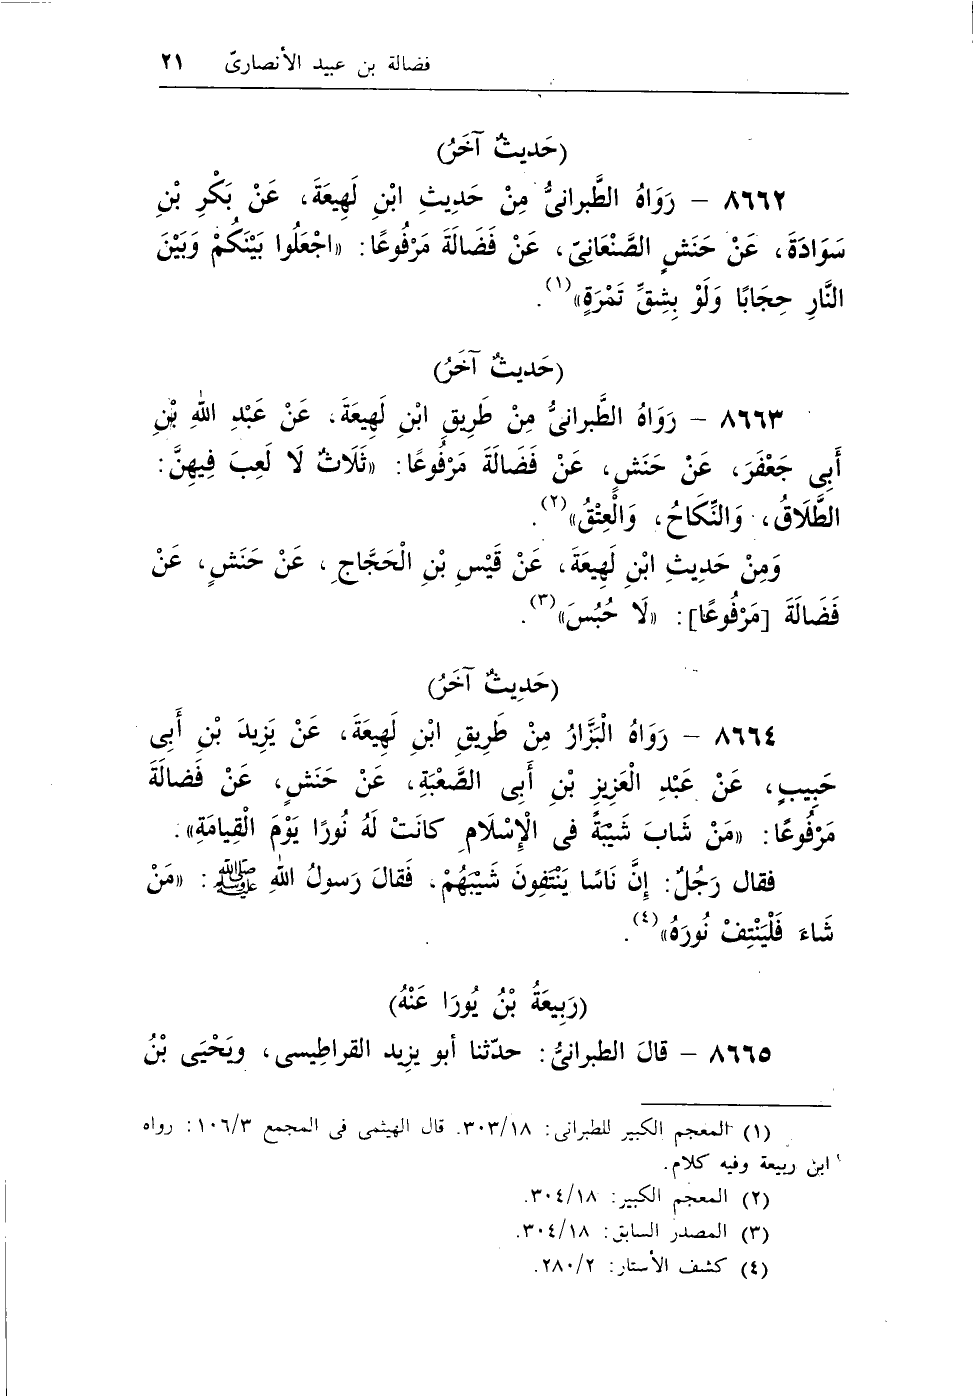 فضالة بن عبيد الأنصارىّ ٢١
(حَديثٌ آخَرُ)
٨٦٦٢ – رَوَاهُ الطَّبرانىُّ مِنْ حَدِيثِ ابْنِ لَهِيعَةَ، عَنْ بَكْرِ بْنِ
سَوَادَةَ، عَنْ حَنَشٍ الصَّنْعَانِىّ، عَنْ فَضَالَةَ مَرْفُوعًا: «اجْعَلُوا بَيْنَكُمْ وَبَيْنَ
النَّارِ حِجَابًا وَلَوْ بِشِقِّ تَمْرَةٍ»(١).
(حَديثٌ آخَرُ)
٨٦٦٣ – رَوَاهُ الطَّبرانىُّ مِنْ طَرِيقِ ابْنِ لَهِيعَةَ، عَنْ عَبْدِ اللهِ بْنِ
أَبِى جَعْفَرَ، عَنْ حَنَشٍ، عَنْ فَضَالَةَ مَرْفُوعًا: «ثَلَاثٌ لَا لَعِبَ فِيهِنَّ:
الطَّلَاقُ، وَالنِّكَاحُ، وَالْعِتْقُ»(٢).
وَمِنْ حَدِيثِ ابْنِ لَهِيعَةَ، عَنْ قَيْسِ بْنِ الْحَجَّاجِ، عَنْ حَنَشٍ، عَنْ
فَضَالَةَ [مَرْفُوعًا]: «لَا حُبُسَ»(٣).
(حَديثٌ آخَرُ)
٨٦٦٤ – رَوَاهُ الْبَزَّارُ مِنْ طَرِيقِ ابْنِ لَهِيعَةَ، عَنْ يَزِيدَ بْنِ أَبِى
حَبِيبٍ، عَنْ عَبْدِ الْعَزِيزِ بْنِ أَبِى الصَّعْبَةِ، عَنْ حَنَشٍ، عَنْ فَضالَةَ
مَرْفُوعًا: «مَنْ شَابَ شَيْبَةً فى الْإِسْلَامِ كانَتْ لَهُ نُورًا يَوْمَ الْقِيامَةِ».
فقال رَجُلٌ: إِنَّ نَاسًا يَنْتَفِونَ شَيْبَهُمْ، فَقالَ رَسولُ اللهِ ﷺ: «مَنْ
شَاءَ فَلْيَنْتِفْ نُورَهُ»(٤).
(رَبِيعَةُ بْنُ يُورَا عَنْهُ)
٨٦٦٥ – قالَ الطبرانىُّ: حدّثنا أبو يزيد القراطيسى، ويَحْيَى بْنُ
(١) المعجم الكبير للطبرانى: ٣٠٣/١٨. قال الهيثمى فى المجمع ١٠٦/٣: رواه
ابن ربيعة وفيه كلام.
(٢) المعجم الكبير: ٣٠٤/١٨.
(٣) المصدر السابق: ٣٠٤/١٨.
(٤) كشف الأستار: ٢٨٠/٢.